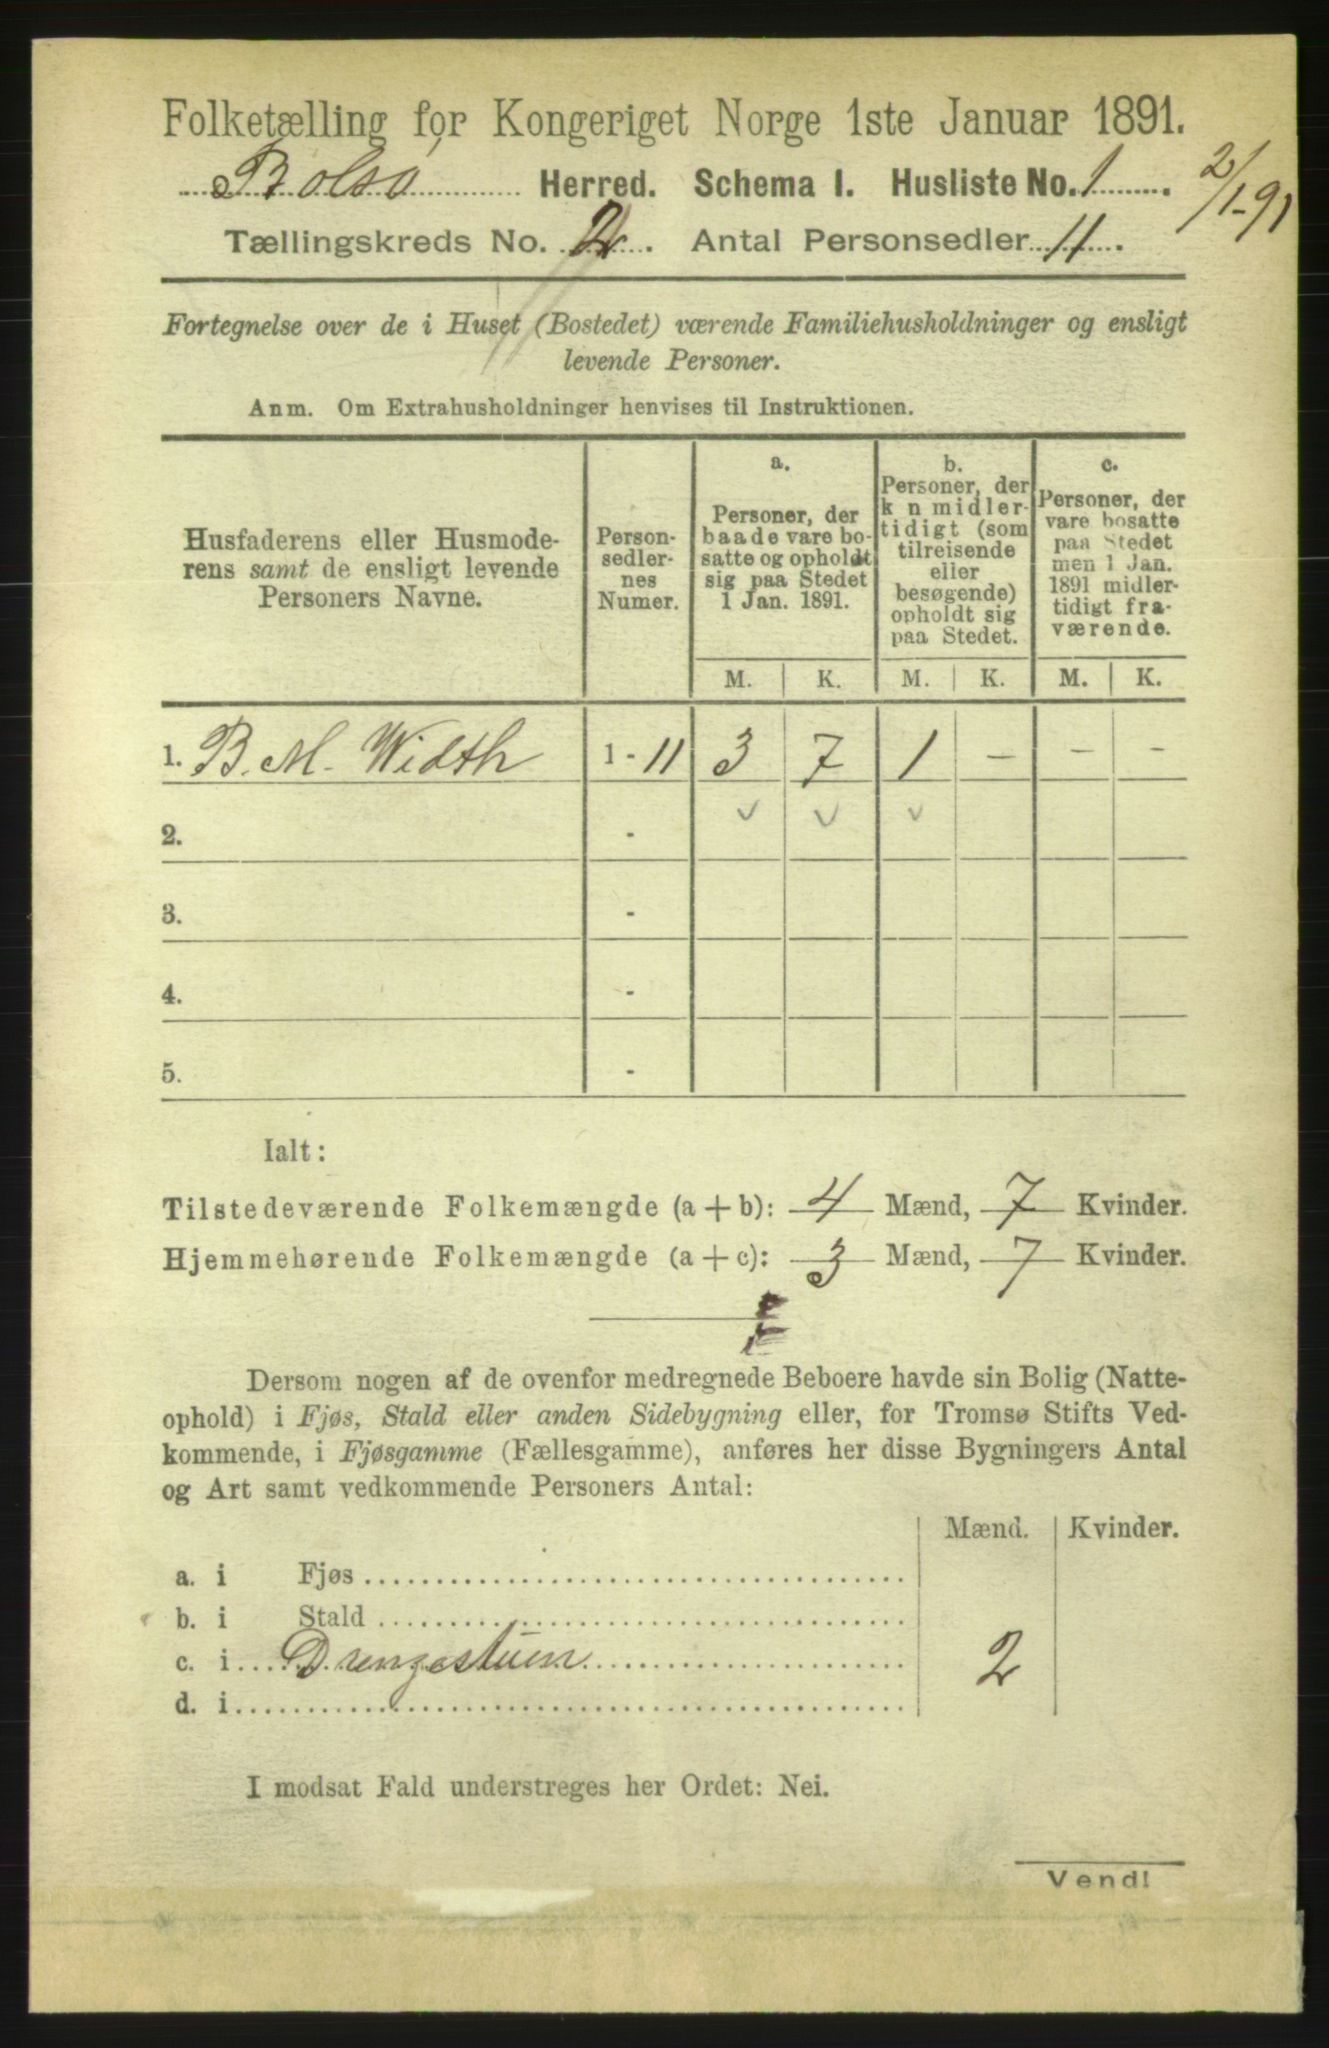 Folketælling for Kongeriget Norge 1ste Januar 1891.
Bolsø Herred. Schema I. Husliste No. 1.
2/1-91
Tællingskreds No. 2. Antal Personsedler 11.
Fortegnelse over de i Huset (Bostedet) værende Familiehusholdninger og ensligt
levende Personer.
Anm. Om Extrahusholdninger henvises til Instruktionen.
Husfaderens eller Husmode-
rens samt de ensligt levende
Personers Navne.
Person-
sedler-
nes
Numer.
a.
Personer, der
baade vare bo-
satte og opholdt
sig paa Stedet
1 Jan. 1891.
b.
Personer, der
k n midler-
tidigt (som
tilreisende
eller
besøgende)
opholdt sig
paa Stedet.
c.
Personer, der
vare bosatte
paa Stedet
men 1 Jan.
1891 midler-
tidigt fra-
værende.
M. K. M. K. M. K.
1. B. M. Width 1 - 11 3 7 1 - - -
2. -
3. -
4. -
5. -
Ialt:
Tilstedeværende Folkemængde (a + b): 4 Mænd, 7 Kvinder.
Hjemmehørende Folkemængde (a + c): 3 Mænd, 7 Kvinder.
Dersom nogen af de ovenfor medregnede Beboere havde sin Bolig (Natte-
ophold) i Fjøs, Stald eller anden Sidebygning eller, for Tromsø Stifts Ved-
kommende, i Fjøsgamme (Fællesgamme), anføres her disse Bygningers Antal
og Art samt vedkommende Personers Antal:
Mænd. Kvinder.
a. i Fjøs
b. i Stald
c. i Drengestuen 2
d. i
I modsat Fald understreges her Ordet: Nei.
Vend!